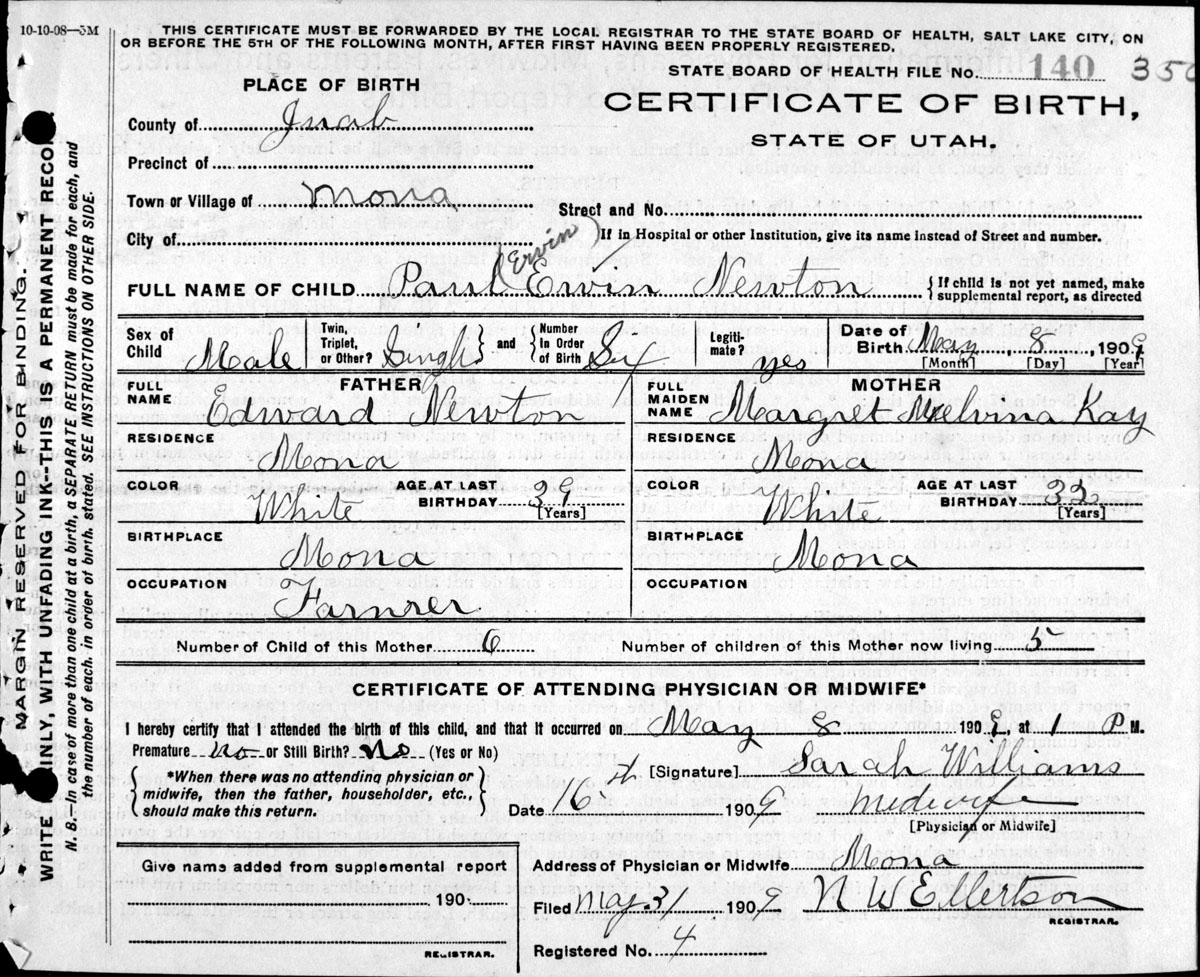 10-10-08—3M
THIS CERTIFICATE MUST BE FORWARDED BY THE LOCAL REGISTRAR TO THE STATE BOARD OF HEALTH, SALT LAKE CITY, ON
OR BEFORE THE 5TH OF THE FOLLOWING MONTH, AFTER FIRST HAVING BEEN PROPERLY REGISTERED.
STATE BOARD OF HEALTH FILE NO. 140 350
PLACE OF BIRTH
CERTIFICATE OF BIRTH,
STATE OF UTAH.
County of Juab
Precinct of
Town or Village of Mona
Street and No.
City of
If in Hospital or other Institution, give its name instead of Street and number.
Ervin
FULL NAME OF CHILD Paul Ervin Newton
If child is not yet named, make supplemental report, as directed
Sex of Child Male Twin, Triplet, or Other? Single and Number In Order of Birth Six Legiti-mate? yes Date of Birth May 8, 1909
[Month] [Day] [Year]
FATHER MOTHER
FULL NAME Edward Newton FULL MAIDEN NAME Margret Melvina Kay
RESIDENCE Mona RESIDENCE Mona
COLOR White AGE AT LAST BIRTHDAY 39 [Years] COLOR White AGE AT LAST BIRTHDAY 32 [Years]
BIRTHPLACE Mona BIRTHPLACE Mona
OCCUPATION Farmer OCCUPATION
Number of Child of this Mother 6 Number of children of this Mother now living 5
CERTIFICATE OF ATTENDING PHYSICIAN OR MIDWIFE*
I hereby certify that I attended the birth of this child, and that it occurred on May 8 1909, at 1 P M.
Premature no or Still Birth? No (Yes or No)
*When there was no attending physician or
midwife, then the father, householder, etc.,
should make this return.
[Signature] Sarah Williams
Date 1909 Midwife
[Physician or Midwife]
Give name added from supplemental report
190
REGISTRAR.
Address of Physician or Midwife Mona
Filed May 31 1909 N W Ellertson
REGISTRAR.
Registered No. 4
MARGIN RESERVED FOR BINDING.
WRITE INLY, WITH UNFADING INK--THIS IS A PERMANENT RECOR
N. B.—In case of more than one child at a birth, a SEPARATE RETURN must be made for each, and
the number of each, in order of birth, stated. SEE INSTRUCTIONS ON OTHER SIDE.